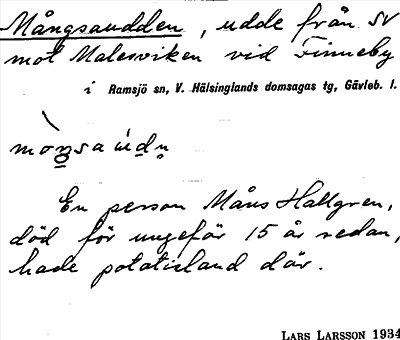 Mångsaudden, udde från SV
mot Malesviken vid Finneby
i Ramsjö sn, V. Hälsinglands domsagas tg, Gävleb. l.
En person Måns Hallgren,
död för ungefär 15 år sedan,
hade potatisland där.
LARS LARSSON 1934